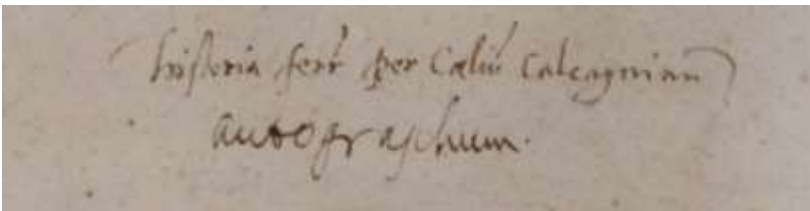 historia ferr̃ per Cæliũ Calcagninũ
autographum.